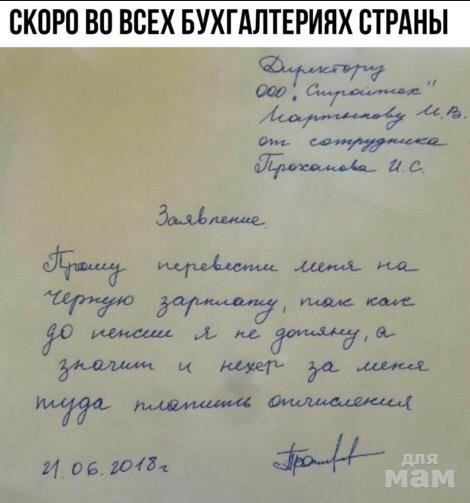 СКОРО ВО ВСЕХ БУХГАЛТЕРИЯХ СТРАНЫ
Директору
ООО "Стройтех"
Мартынову И.В.
от сотрудника
Проханова И.С.
Заявление
Прошу перевести меня на
чёрную зарплату, так как
до пенсии я не дотяну, а
значит и нехер за меня
туда платить отчисления
21.06.2018г
для
мам